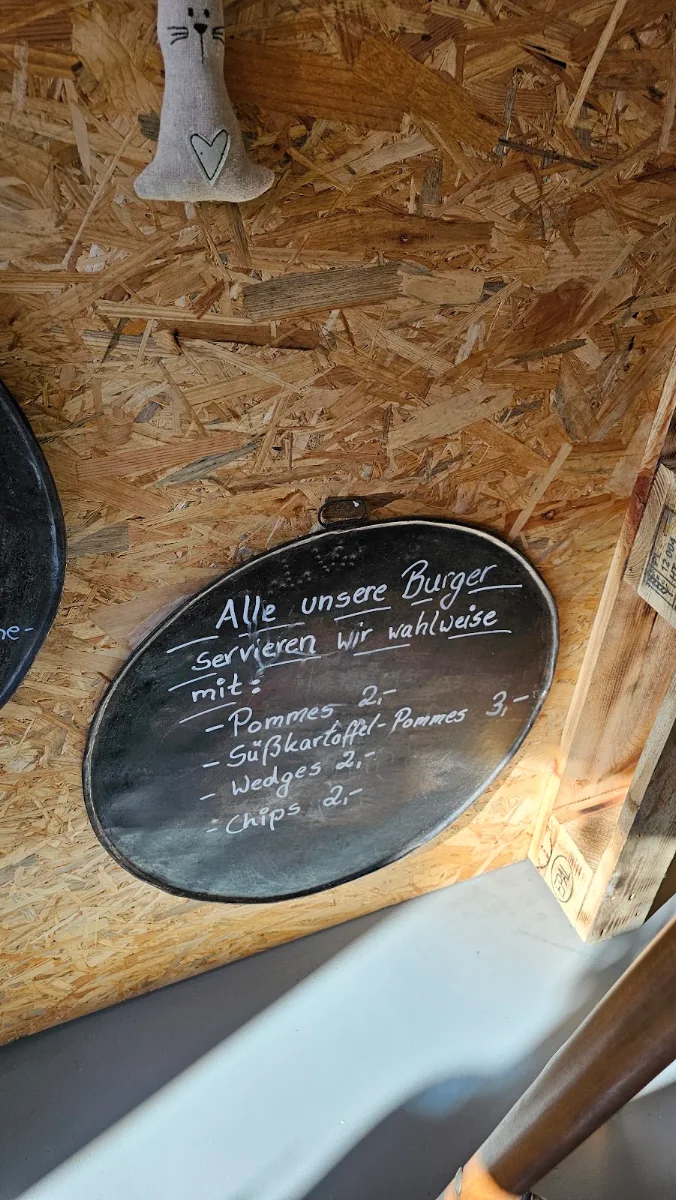 Alle unsere Burger
servieren wir wahlweise
mit:
- Pommes 2,-
- Süßkartoffel-Pommes 3,-
- Wedges 2,-
- Chips 2,-
ne-